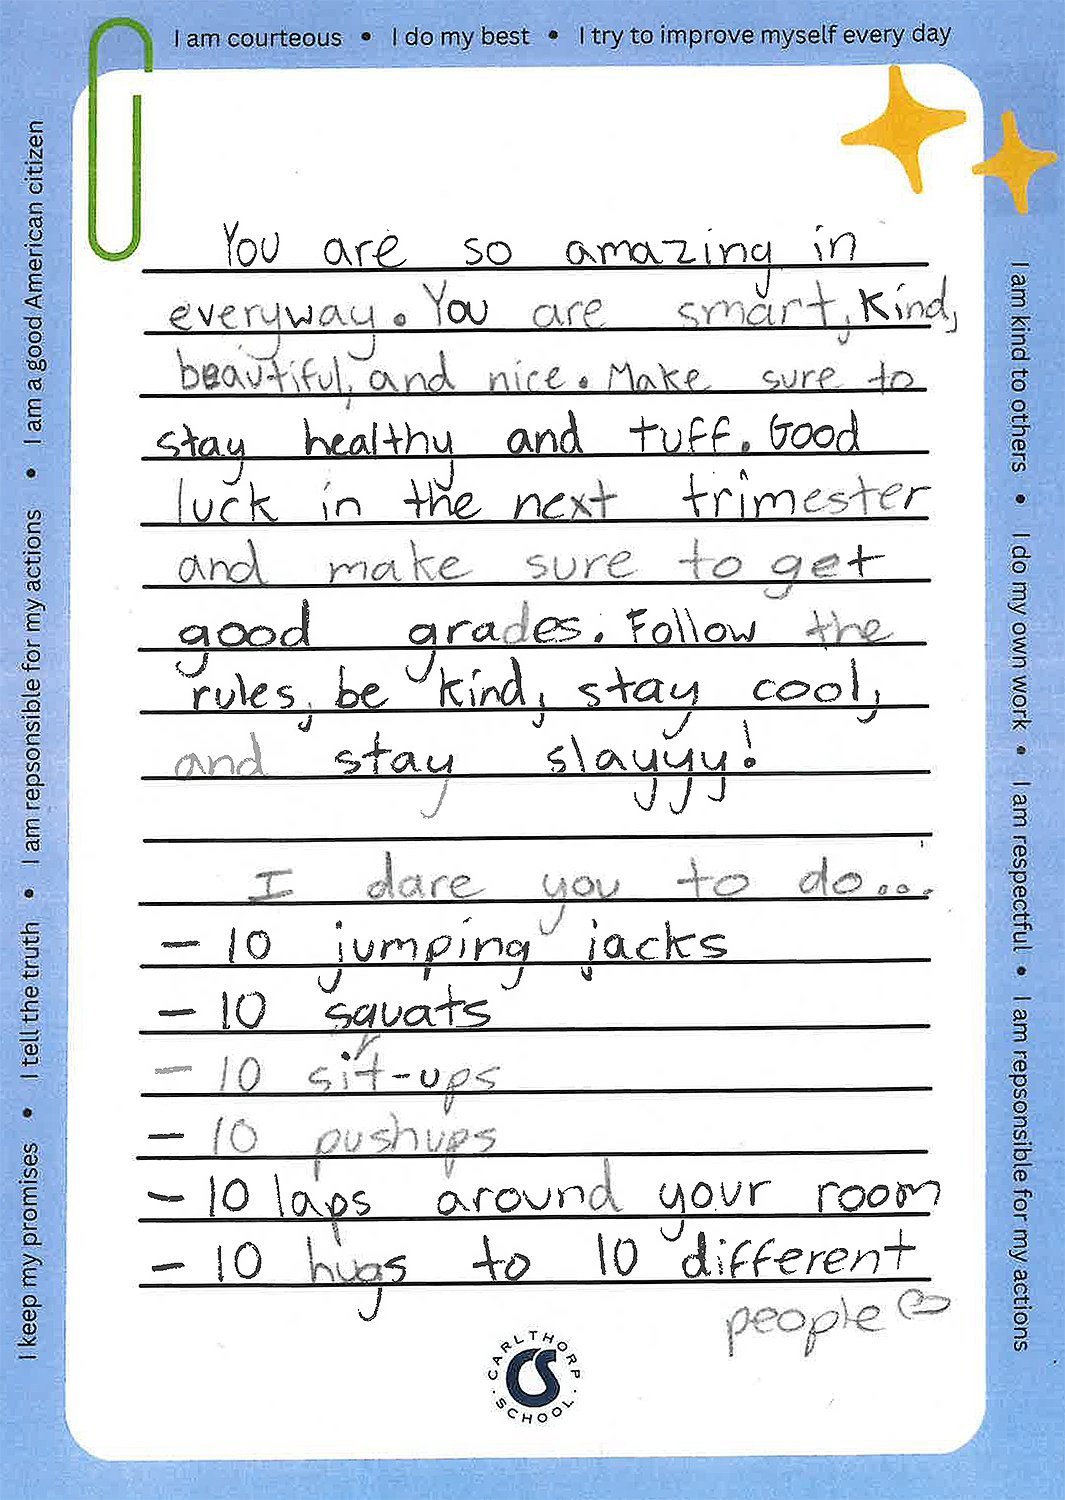 I am courteous • I do my best • I try to improve myself every day
I keep my promises • I tell the truth • I am repsonsible for my actions • I am a good American citizen
You are so amazing in
everyway. You are smart, kind,
beautiful, and nice. Make sure to
stay healthy and tuff. Good
luck in the next trimester
and make sure to get
good grades. Follow the
rules, be kind, stay cool,
and stay slayyy!
I dare you to do...
- 10 jumping jacks
- 10 squats
- 10 sit-ups
- 10 pushups
- 10 laps around your room
- 10 hugs to 10 different
people
I am kind to others • I do my own work • I am respectful • I am repsonsible for my actions
CARLTHORP
CS
SCHOOL